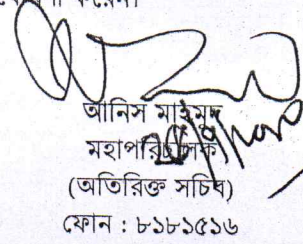 করেন।
আনিস মাহমুদ
মহাপরিচালক
(অতিরিক্ত সচিব)
ফোন : ৮১৮১৫১৬